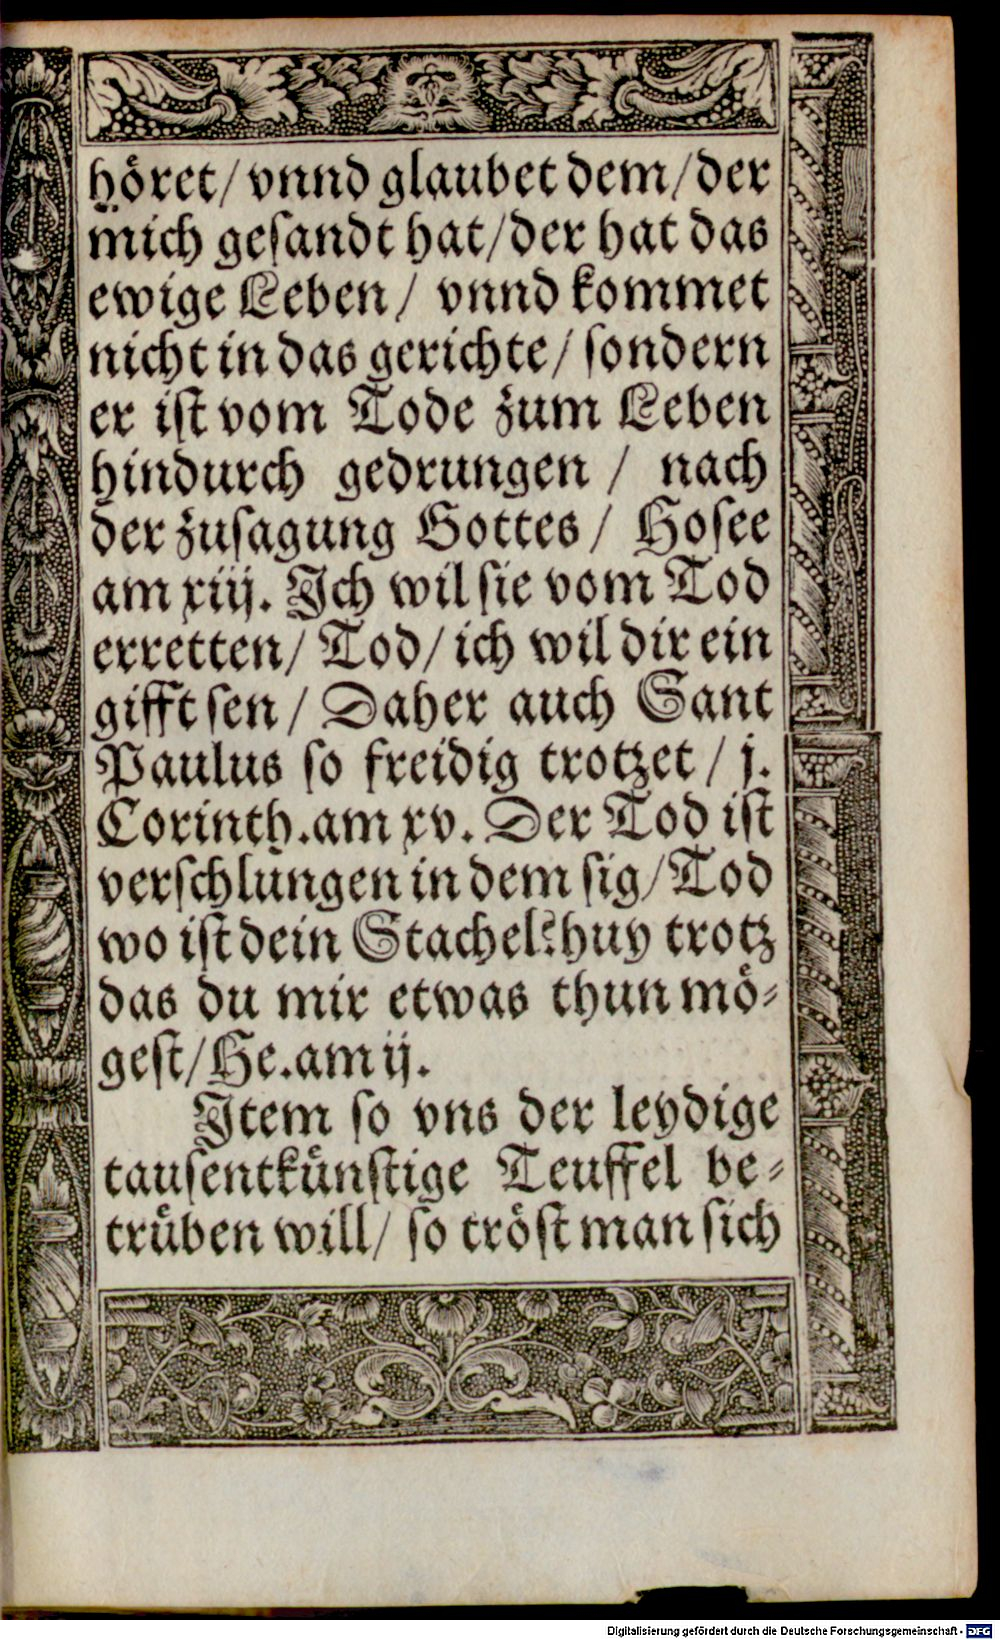 höret/ vnnd glaubet dem/ der
mich gesandt hat/ der hat das
ewige Leben/ vnnd kommet
nicht in das gerichte/ sondern
er ist vom Tode zum Leben
hindurch gedrungen / nach
der zusagung Gottes/ Hosee
am xiij. Ich wil sie vom Tod
erretten/ Tod/ ich wil dir ein
gifft sen/ Daher auch Sant
Paulus so freidig trotzet / j.
Corinth. am xv. Der Tod ist
verschlungen in dem sig/ Tod
wo ist dein Stachel? huy trotz
das du mir etwas thun mö-
gest/ He. am ij.
Item so vns der leydige
tausentkünstige Teuffel be-
trüben will/ so tröst man sich
Digitalisierung gefördert durch die Deutsche Forschungsgemeinschaft - DFG